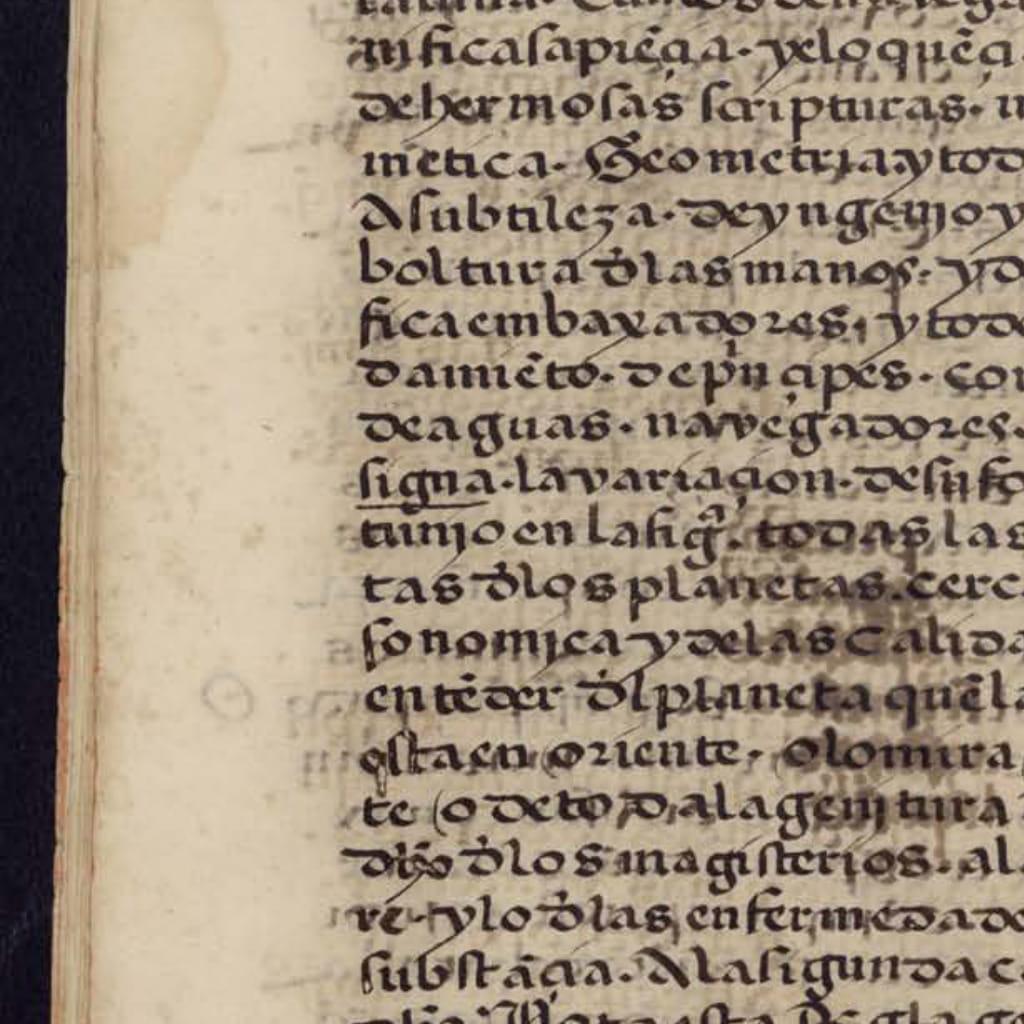 nificasapiẽçia. yeloquẽçi
dehermosas scripturas.
metica. Geometria.ytod
Asubtileza. deyngenioy
boltura đlasmanos. yd
ficaembaxadores, ytodo
damiẽto. deprinçipes. con
deaguas. navegadores.
signa. lavariaçion. desufo
tunio en lafigª. todas las
tas đlos planetas. cerc
sonomica ydelas Calida
entẽder đlplaneta quẽla
qstaen oriente. olomira
te (o detoda lagenitura
đlos magisterios. al
re. ylo đlas enfermedade
substãçia. Alasigundac